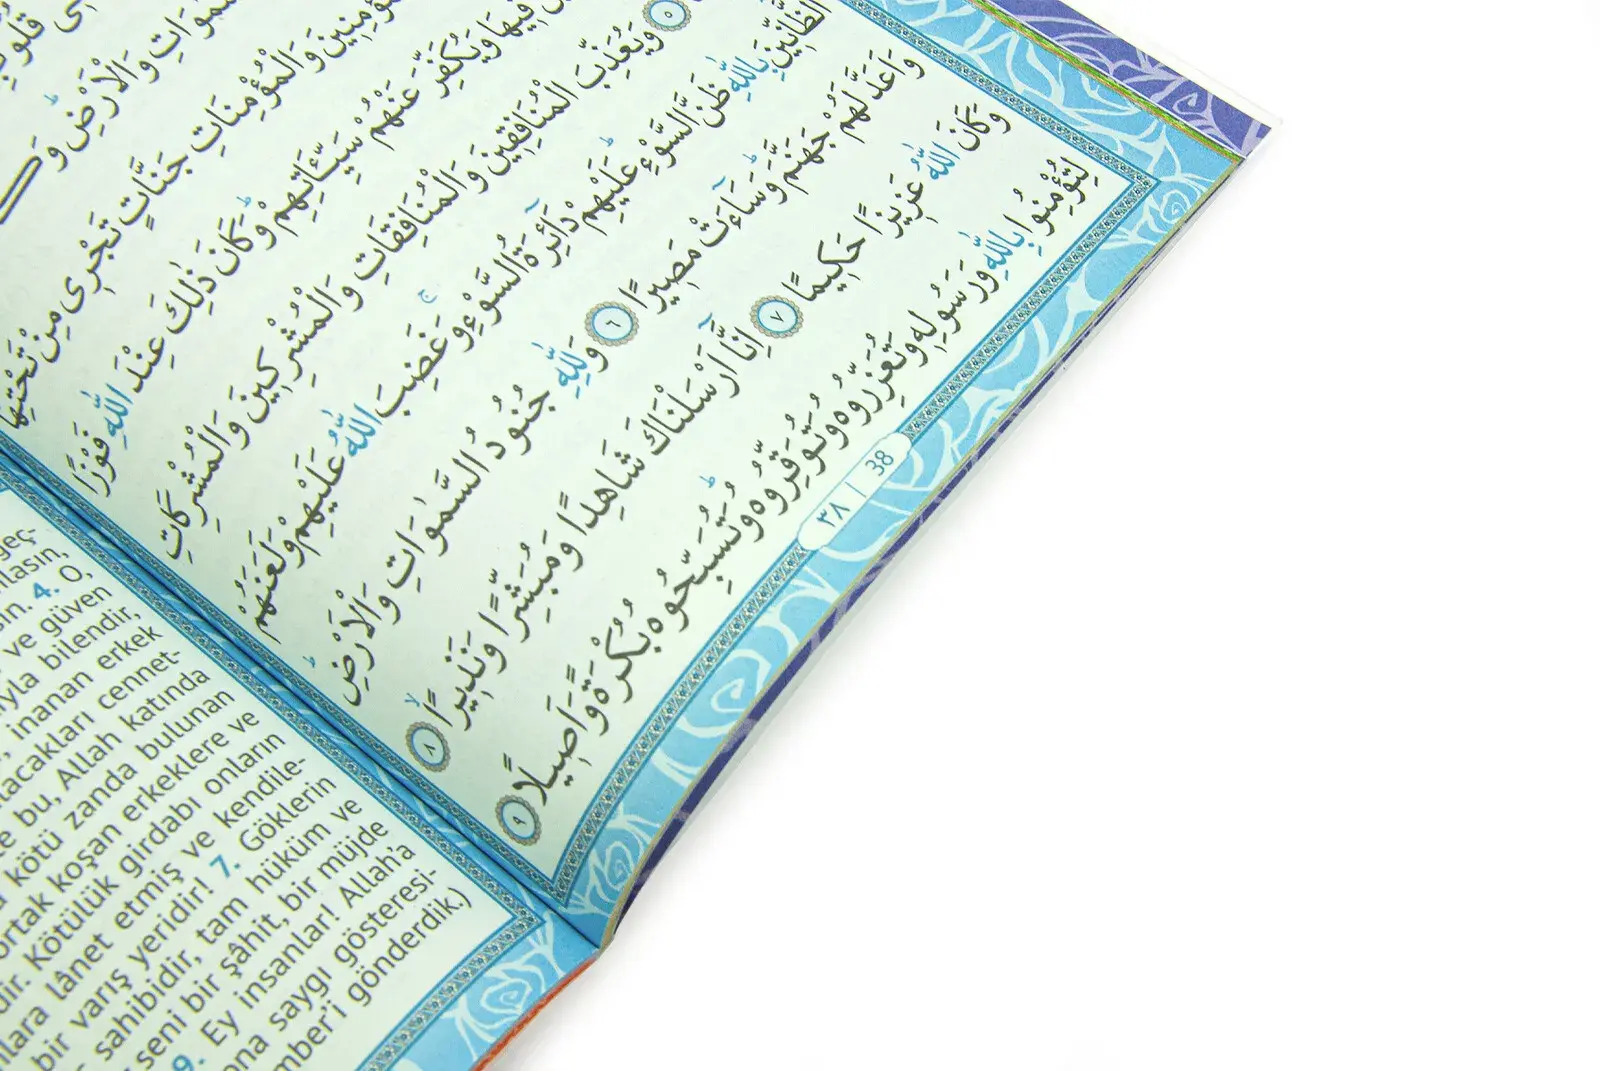 وَالْاَرْضِۜ
وَالْمُؤْمِنَاتِ جَنَّاتٍ تَجْرِى مِنْ تَحْتِهَا
فِيهَا وَيُكَفِّرَ عَنْهُمْ سَيِّـَٔاتِهِمْۜ وَكَانَ ذٰلِكَ عِنْدَ اللّٰهِ فَوْزًا
٥ وَيُعَذِّبَ الْمُنَافِقِينَ وَالْمُنَافِقَاتِ وَالْمُشْرِكِينَ وَالْمُشْرِكَاتِ
الظَّٓانِّينَ بِاللّٰهِ ظَنَّ السَّوْءِۜ عَلَيْهِمْ دَٓائِرَةُ السَّوْءِۚ وَغَضِبَ اللّٰهُ عَلَيْهِمْ وَلَعَنَهُمْ
وَاَعَدَّ لَهُمْ جَهَنَّمَۜ وَسَٓاءَتْ مَصِيرًا ٦ وَلِلّٰهِ جُنُودُ السَّمٰوَاتِ وَالْاَرْضِۜ
وَكَانَ اللّٰهُ عَزِيزًا حَكِيمًا ٧ اِنَّٓا اَرْسَلْنَاكَ شَاهِدًا وَمُبَشِّرًا وَنَذِيرًاۙ ٨
لِتُؤْمِنُوا بِاللّٰهِ وَرَسُولِهِ وَتُعَزِّرُوهُ وَتُوَقِّرُوهُۜ وَتُسَبِّحُوهُ بُكْرَةً وَاَصِيلًا ٩
٣٨ | 38
geç-
4. O,
ve güven
bilendir,
inanan erkek
cennet-
bu, Allah katında
kötü zanda bulunan
ortak koşan erkeklere ve
Kötülük girdabı onların
lânet etmiş ve kendile-
bir varış yeridir! 7. Göklerin
sahibidir, tam hüküm ve
seni bir şâhit, bir müjde
9. Ey insanlar! Allah'a
ona saygı gösteresi-
gönderdik.)